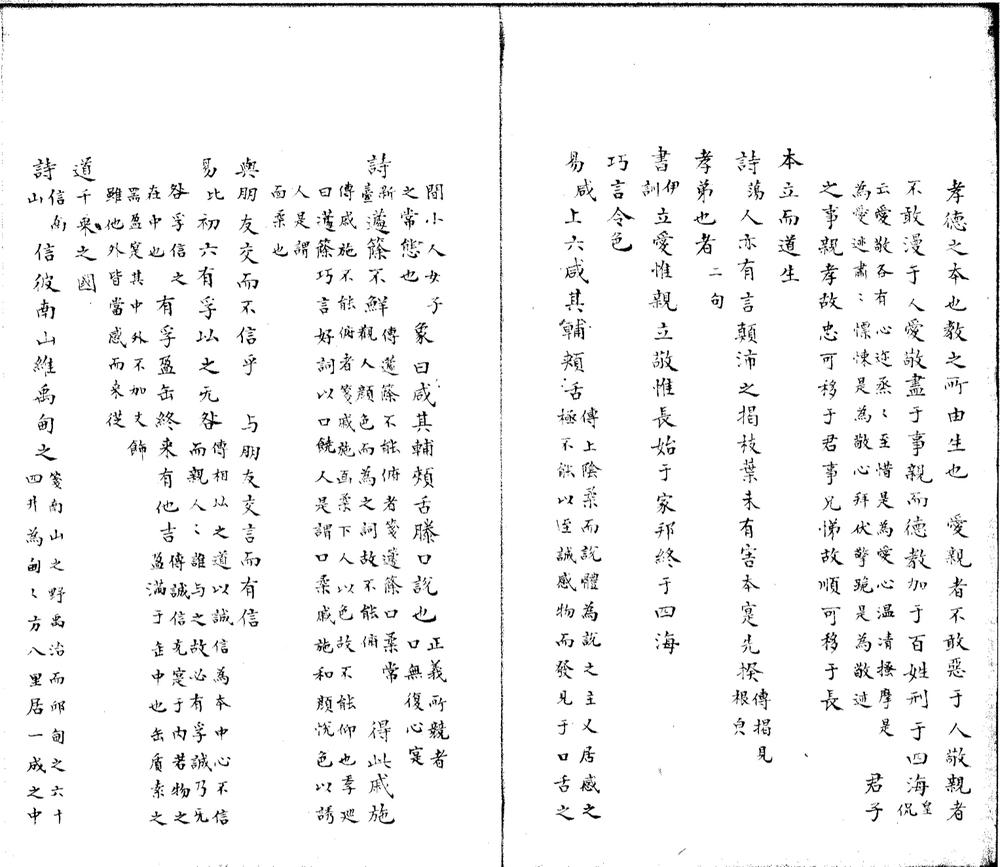 孝德之本也教之所由生也 愛親者不敢惡于人敬親者
不敢漫于人愛敬盡于事親而德教加于百姓刑于四海 皇侃
云愛敬各有心迹烝〻至惜是為愛心溫凊搔摩是
為愛迹肅〻慄悚是為敬心拜伏擎跪是為敬迹 君子
之事親孝故忠可移于君事兄悌故順可移于長
本立而道生
詩 蕩 人亦有言顛沛之揭枝葉未有害本寔先撥 傳揭見
根皃
孝弟也者 二句
書 伊訓 立愛惟親立敬惟長始于家邦終于四海
巧言令色
易 咸上六咸其輔頰舌 傳上陰柔而說體為說之主又居感之
極不能以至誠感物而發見于口舌之
間小人女子
之常態也 象曰咸其輔頰舌滕口說也 正義所競者
口無復心寔
詩 新臺 籧篨不鮮 傳籧篨不能俯者箋籧篨口柔常
觀人顏色而為之詞故不能俯 得此戚施
傳戚施不能仰者箋戚施面柔下人以色故不能仰也李廵
曰籧篨巧言好詞以口饒人是謂口柔戚施和顏悅色以誘
人是謂
面柔也
與朋友交而不信乎 与朋友交言而有信
易 比初六有孚比之无咎 傳相比之道以誠信為本中心不信
而親人〻誰与之故必有孚誠乃无
咎孚信之
在中也 有孚盈缶終来有他吉 傳誠信充寔于內若物之
盈滿于缶中也缶質素之
器盈寔其中外不加文飾
雖他外皆當感而来從
道千乘之國
詩 信南山 信彼南山維禹甸之 箋南山之野禹治而邱甸之六十
四井為甸〻方八里居一成之中